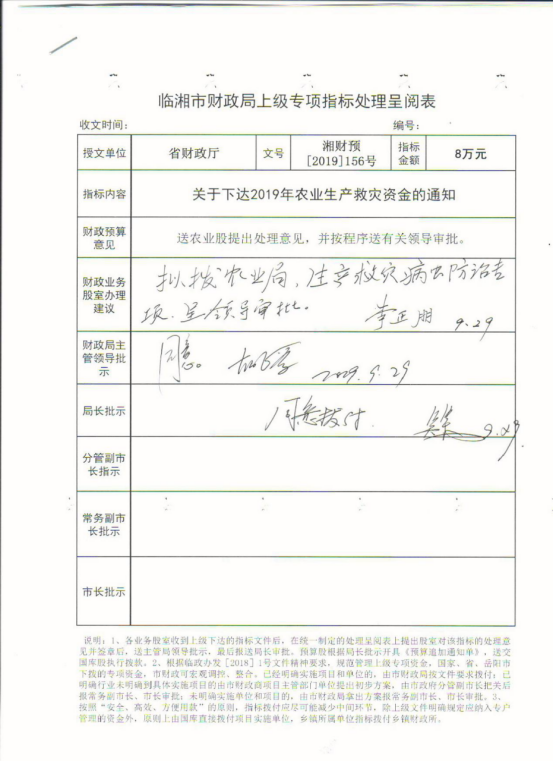 临湘市财政局上级专项指标处理呈阅表
收文时间： 编号：
授文单位 省财政厅 文号 湘财预[2019]156号 指标金额 8万元
指标内容 关于下达2019年农业生产救灾资金的通知
财政预算意见 送农业股提出处理意见，并按程序送有关领导审批。
财政业务股室办理建议
拟拨农业局，生产救灾病虫防治专
项，呈领导审批。 李正朋 9.29
财政局主管领导批示 同意。 2019.9.29
局长批示 同意拨付 9.29
分管副市长指示
常务副市长批示
市长批示
说明：1、各业务股室收到上级下达的指标文件后，在统一制定的处理呈阅表上提出股室对该指标的处理意
见并签章后，送主管局领导批示，最后报送局长审批。预算股根据局长批示开具《预算追加通知单》，送交
国库股执行拨款。2、根据临政办发［2018］1号文件精神要求，规范管理上级专项资金，国家、省、岳阳市
下拨的专项资金，市财政可宏观调控、整合。已经明确实施项目和单位的，由市财政局按文件要求拨付；已
明确行业未明确到具体实施项目的由市财政商项目主管部门单位提出初步方案，由市政府分管副市长把关后
报常务副市长、市长审批；未明确实施单位和项目的，由市财政局拿出方案报常务副市长、市长审批。3、
按照“安全、高效、方便用款”的原则，指标拨付应尽可能减少中间环节，除上级文件明确规定应纳入专户
管理的资金外，原则上由国库直接拨付项目实施单位，乡镇所属单位指标拨付乡镇财政所。